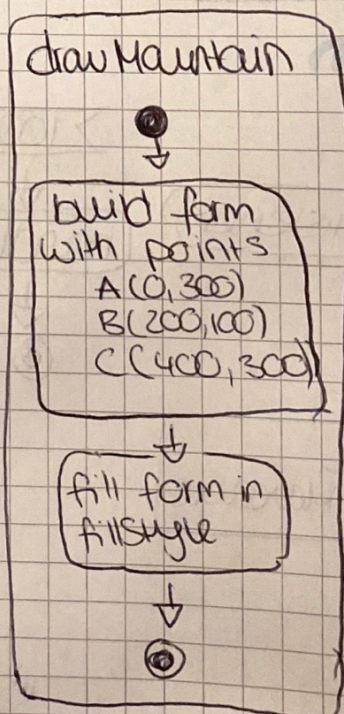 drawMountain
build form
with points
A(0,300)
B(200,100)
C(400,300)
fill form in
fillStyle